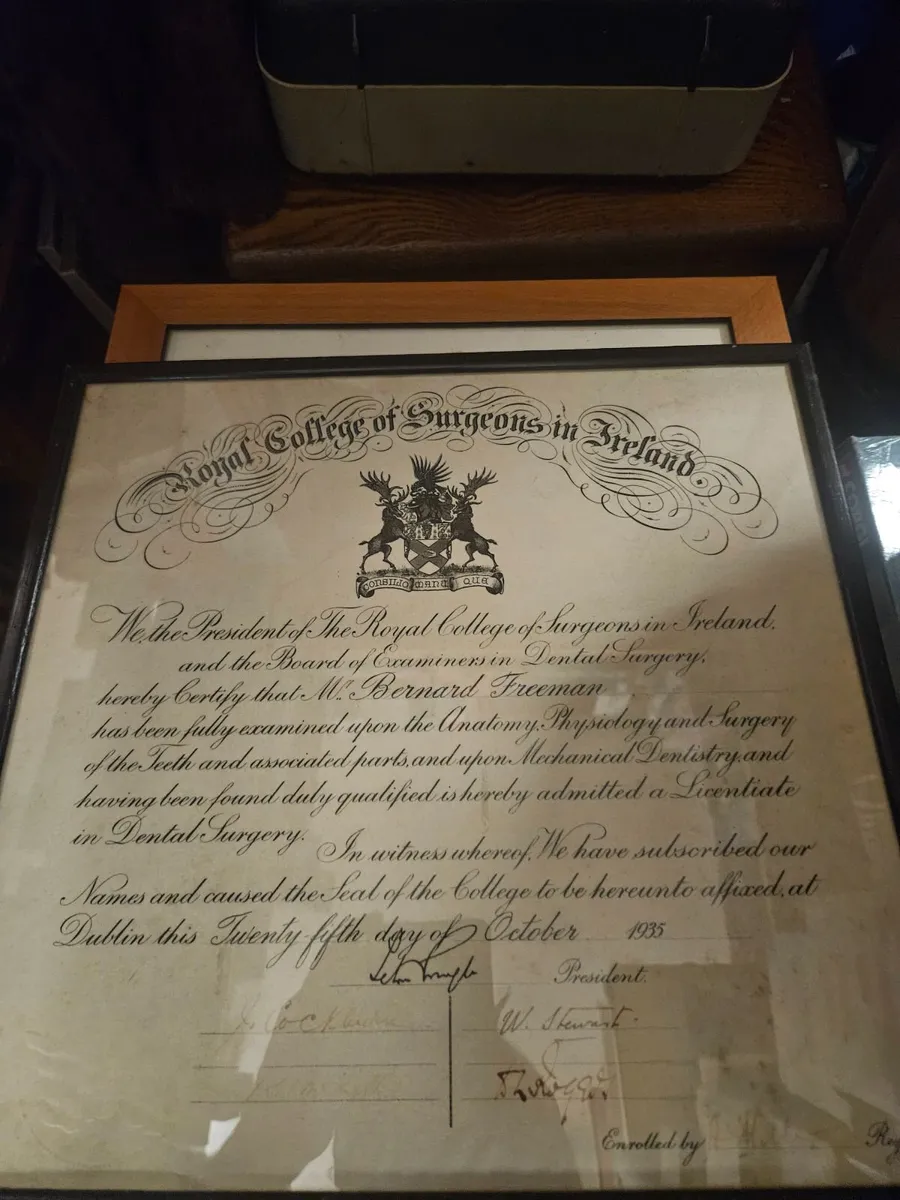 Royal College of Surgeons in Ireland
CONSILIO MANU QUE
We, the President of The Royal College of Surgeons in Ireland,
and the Board of Examiners in Dental Surgery,
hereby Certify that Mr. Bernard Freeman
has been fully examined upon the Anatomy, Physiology and Surgery
of the Teeth and associated parts, and upon Mechanical Dentistry, and
having been found duly qualified is hereby admitted a Licentiate
in Dental Surgery.
In witness whereof, We have subscribed our
Names and caused the Seal of the College to be hereunto affixed, at
Dublin this Twenty fifth day of October 1935
President.
W. Stewart.
Enrolled by